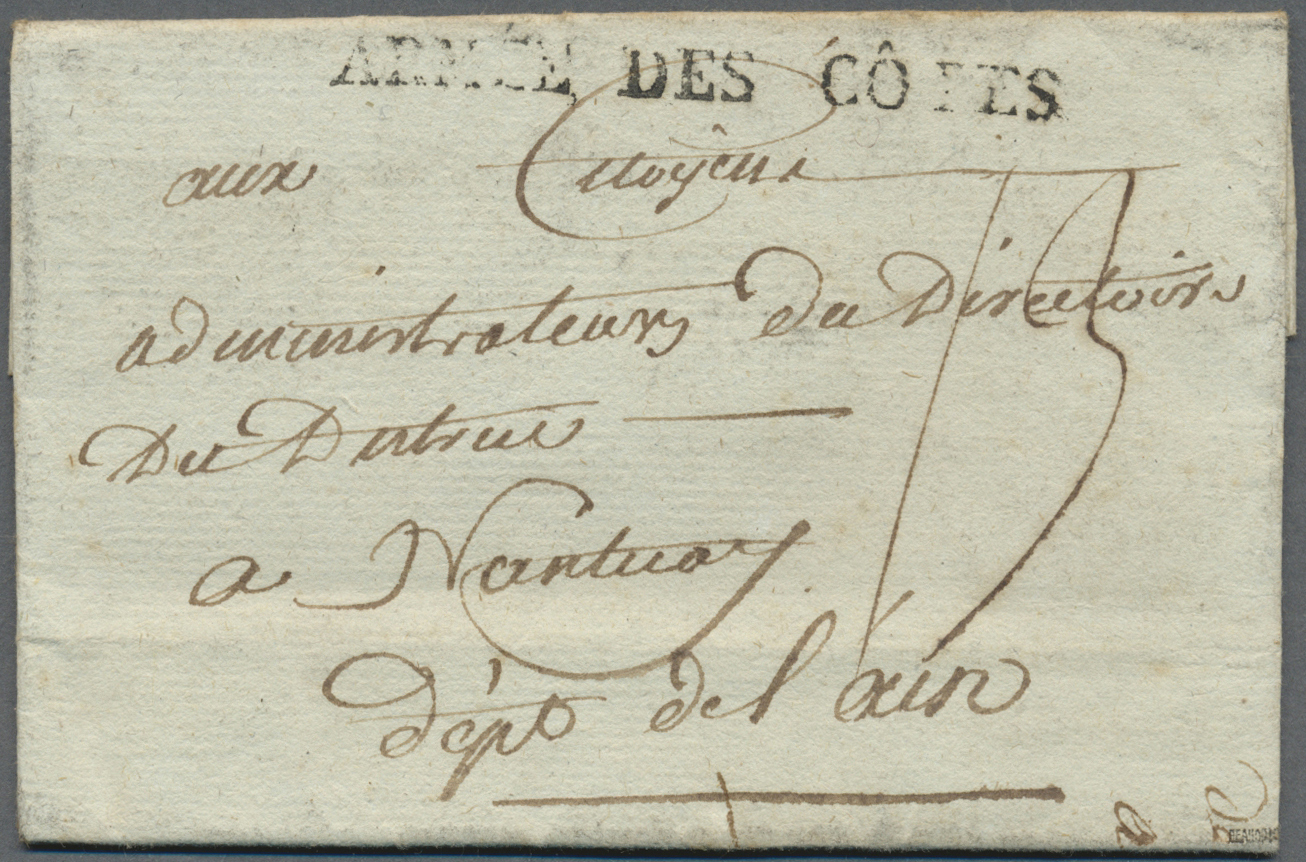 ARMÉE DES CÔTES
aux Citoyens
administrateurs du Directoire
Du District
a Nantua
13
dépt de l'ain